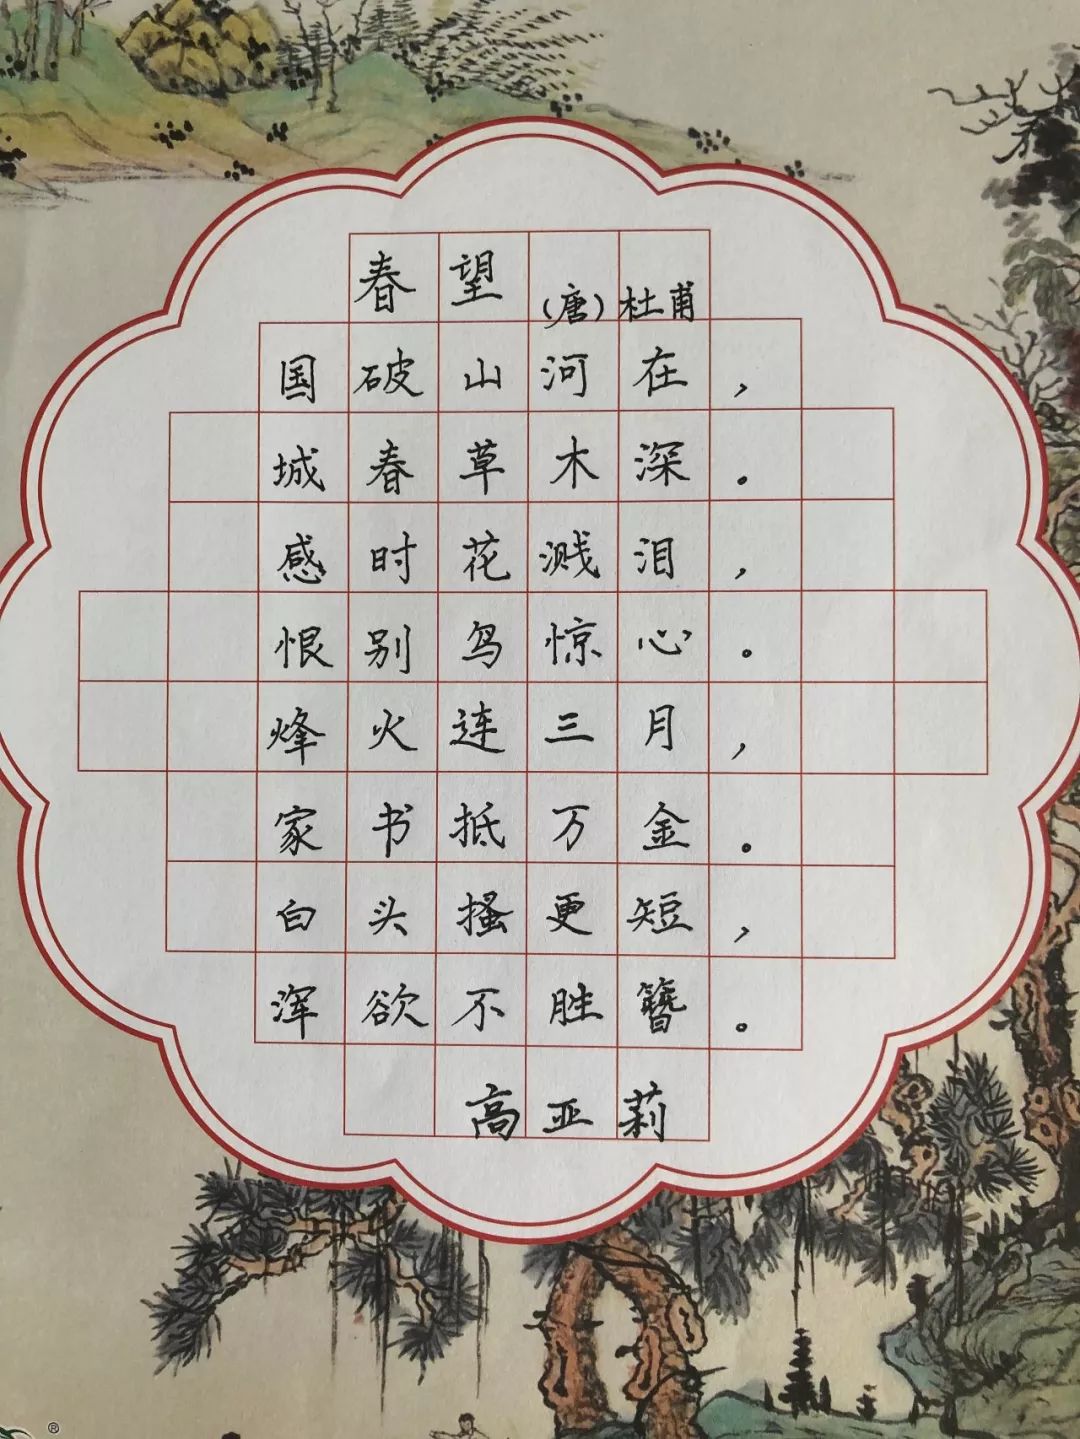 春望（唐）杜甫
国破山河在，
城春草木深。
感时花溅泪，
恨别鸟惊心。
烽火连三月，
家书抵万金。
白头搔更短，
浑欲不胜簪。
高亚莉
®